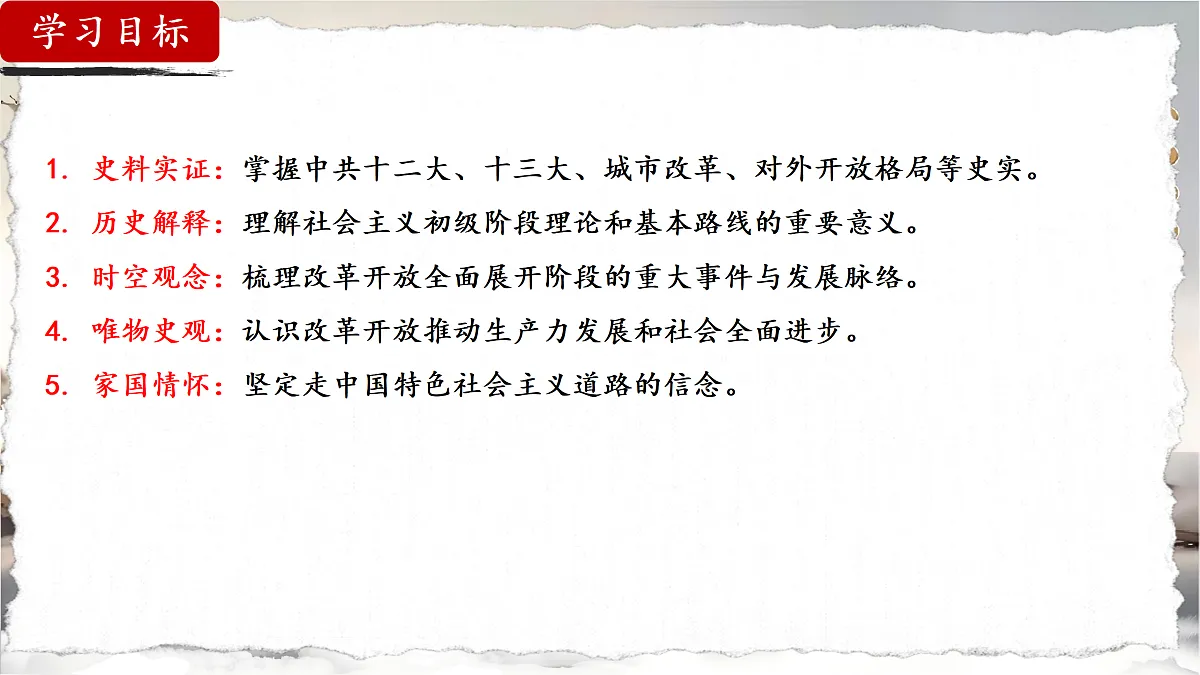 学习目标
1. 史料实证：掌握中共十二大、十三大、城市改革、对外开放格局等史实。
2. 历史解释：理解社会主义初级阶段理论和基本路线的重要意义。
3. 时空观念：梳理改革开放全面展开阶段的重大事件与发展脉络。
4. 唯物史观：认识改革开放推动生产力发展和社会全面进步。
5. 家国情怀：坚定走中国特色社会主义道路的信念。